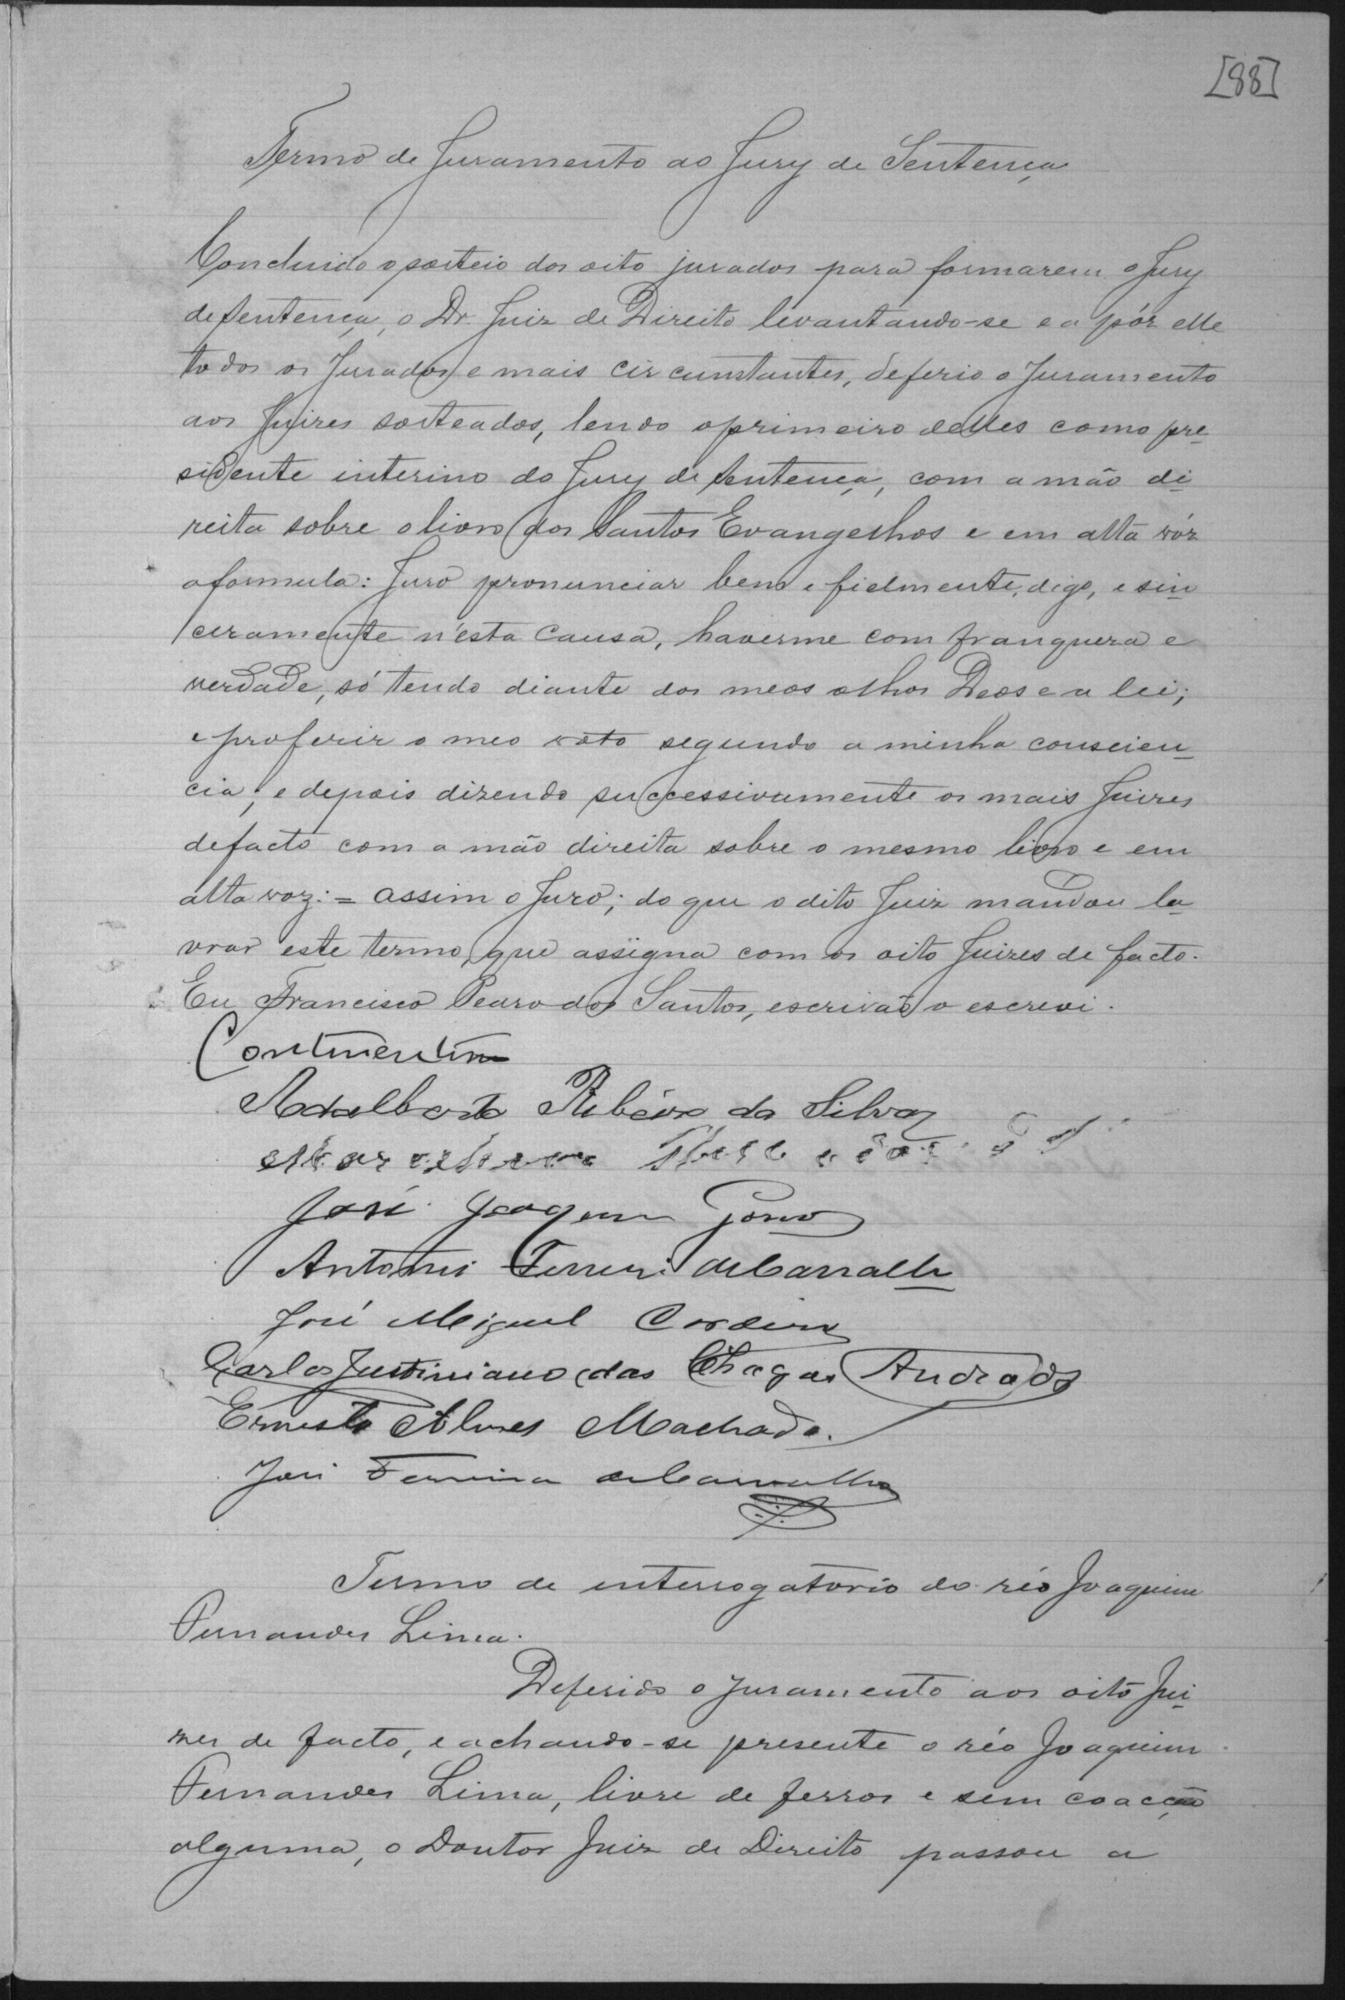 [88]
Termo de Juramento ao Jury de Sentença
Concluido o sorteio dos oito jurados para formarem o Jury
de Sentença, o Dr. Juiz de Direito levantando-se e a pôz elle
todos os Jurados e mais circunstantes, deferio o Juramento
aos Juizes sorteados, lendo o primeiro delles como pre-
sidente interino do Jury de Sentença, com a mão di-
reita sobre o livro dos Santos Evangelhos e em alta vóz
a formula: Juro pronunciar bem e fielmente, digo, e sin-
ceramente n'esta causa, haverme com franqueza e
verdade, só tendo diante dos meos olhos Deos e a lei;
e proferir o meo voto segundo a minha conscien-
cia; e depois dizendo successivamente os mais Juizes
de facto com a mão direita sobre o mesmo livro e em
alta voz: = assim o Juro; do que o dito Juiz mandou la-
vrar este termo, que assigna com os oito Juizes de facto.
Eu Francisco Pedro dos Santos, escrivão o escrevi.
Continentino
Adalberto Ribeiro da Silva
José Joaquim
Antonio Ferreira de Carvalho
José Miguel Cordeiro
Carlos Justiniano das Chagas Andrade
Ernesto Alves Machado.
José Ferreira de Carvalho
Termo de interrogatorio do réo Joaquim
Fernandes Lima.
Deferido o juramento aos oito Jui-
zes de facto, e achando-se presente o réo Joaquim
Fernandes Lima, livre de ferros e sem coacção
alguma, o Doutor Juiz de Direito passou a